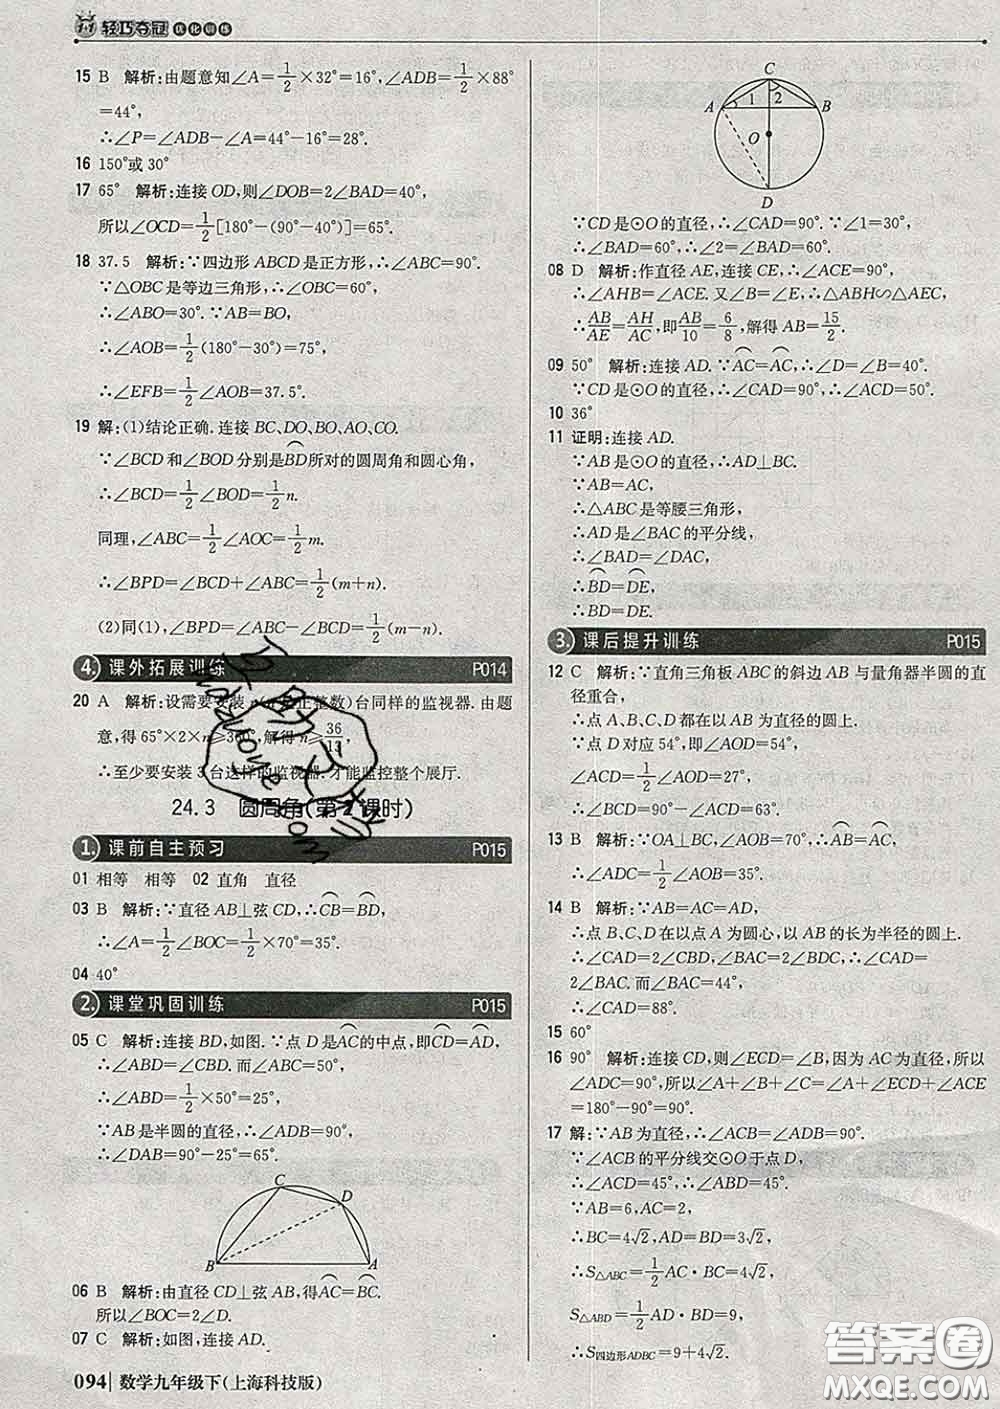 1+1 轻巧夺冠 优化训练
15 B 解析:由题意知∠A=1/2×32°=16°,∠ADB=1/2×88°
=44°,
∴∠P=∠ADB-∠A=44°-16°=28°.
16 150°或30°
17 65° 解析:连接OD,则∠DOB=2∠BAD=40°,
所以∠OCD=1/2[180°-(90°-40°)]=65°.
18 37.5 解析:∵四边形ABCD是正方形,∴∠ABC=90°.
∵△OBC是等边三角形,∴∠OBC=60°,
∴∠ABO=30°.∵AB=BO,
∴∠AOB=1/2(180°-30°)=75°,
∴∠EFB=1/2∠AOB=37.5°.
19 解:(1)结论正确.连接BC、DO、BO、AO、CO.
∵∠BCD和∠BOD分别是⌒BD所对的圆周角和圆心角,
∴∠BCD=1/2∠BOD=1/2n.
同理,∠ABC=1/2∠AOC=1/2m.
∴∠BPD=∠BCD+∠ABC=1/2(m+n).
(2)同(1),∠BPD=∠BCD-∠ABC=1/2(n-m).
4. 课外拓展训练 P014
20 A 解析:设需要安装n(n是正整数)台同样的监视器.由题
意,得65°×2×n≥360°,解得n≥36/13,
∴至少要安装3台这样的监视器.才能监控整个展厅.
24.3 圆周角(第2课时)
1. 课前自主预习 P015
01 相等 相等 02 直角 直径
03 B 解析:∵直径AB⊥弦CD,∴⌒CB=⌒BD,
∴∠A=1/2∠BOC=1/2×70°=35°.
04 40°
2. 课堂巩固训练 P015
05 C 解析:连接BD,如图.∵点D是⌒AC的中点,即⌒CD=⌒AD,
∴∠ABD=∠CBD.而∠ABC=50°,
∴∠ABD=1/2×50°=25°,
∵AB是半圆的直径,∴∠ADB=90°,
∴∠DAB=90°-25°=65°.
C
D
B
A
06 B 解析:由直径CD⊥弦AB,得⌒AC=⌒BC.
所以∠BOC=2∠D.
07 C 解析:如图,连接AD.
094 数学九年级下(上海科技版)
C
A 1 2 B
O
D
∵CD是⊙O的直径,∴∠CAD=90°.∵∠1=30°,
∴∠BAD=60°,∴∠2=∠BAD=60°.
08 D 解析:作直径AE,连接CE,∴∠ACE=90°,
∴∠AHB=∠ACE.又∠B=∠E,∴△ABH∽△AEC,
∴AB/AE=AH/AC,即AB/10=6/8,解得AB=15/2.
09 50° 解析:连接AD.∵⌒AC=⌒AC,∴∠D=∠B=40°.
∵CD是⊙O的直径,∴∠CAD=90°,∴∠ACD=50°.
10 36°
11 证明:连接AD.
∵AB是⊙O的直径,∴AD⊥BC.
∵AB=AC,
∴△ABC是等腰三角形,
∴AD是∠BAC的平分线,
∴∠BAD=∠DAC,
∴⌒BD=⌒DE,
∴BD=DE.
3. 课后提升训练 P015
12 C 解析:∵直角三角板ABC的斜边AB与量角器半圆的直
径重合,
∴点A、B、C、D都在以AB为直径的圆上.
∵点D对应54°,即∠AOD=54°,
∴∠ACD=1/2∠AOD=27°,
∴∠BCD=90°-∠ACD=63°.
13 B 解析:∵OA⊥BC,∠AOB=70°,∴⌒AB=⌒AC,
∴∠ADC=1/2∠AOB=35°.
14 B 解析:∵AB=AC=AD,
∴点B、C、D在以点A为圆心,以AB的长为半径的圆上.
∴∠CAD=2∠CBD,∠BAC=2∠BDC.
∵∠CBD=2∠BDC,∴∠CAD=
2∠BAC.而∠BAC=44°,
∴∠CAD=88°.
15 60°
16 90° 解析:连接CD,则∠ECD=∠B,因为AC为直径,所以
∠ADC=90°,所以∠A+∠B+∠C=∠A+∠ECD+∠ACE
=180°-90°=90°.
17 解:∵AB为直径,∴∠ACB=∠ADB=90°.
∵∠ACB的平分线交⊙O于点D,
∴∠ACD=45°,∴∠ABD=45°.
∵AB=6,AC=2,
∴BC=4√2,AD=BD=3√2,
∴S△ABC=1/2AC·BC=4√2,
S△ABD=1/2AD·BD=9,
∴S四边形ADBC=9+4√2.
答案圈
MXQE.COM